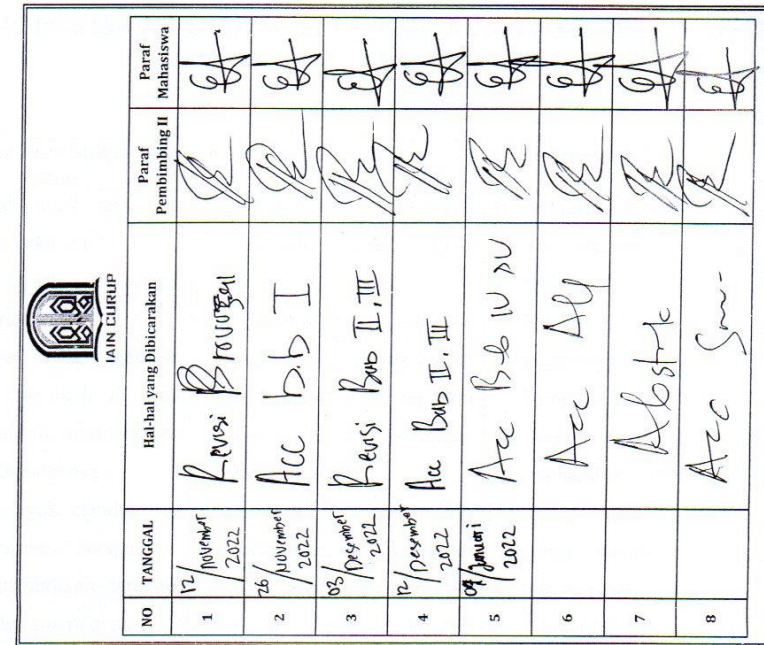 IAIN CURUP
NO TANGGAL Hal-hal yang Dibicarakan Paraf Pembimbing II Paraf Mahasiswa
1 12/November 2022 Revisi
2 26/November 2022 Acc b.b I
3 03/Desember 2022 Revisi Bab II, III
4 12/Desember 2022 Acc Bab II, III
5 Januari 2022 Acc Bab IV
6 Acc
7 Abstrk
8 Acc